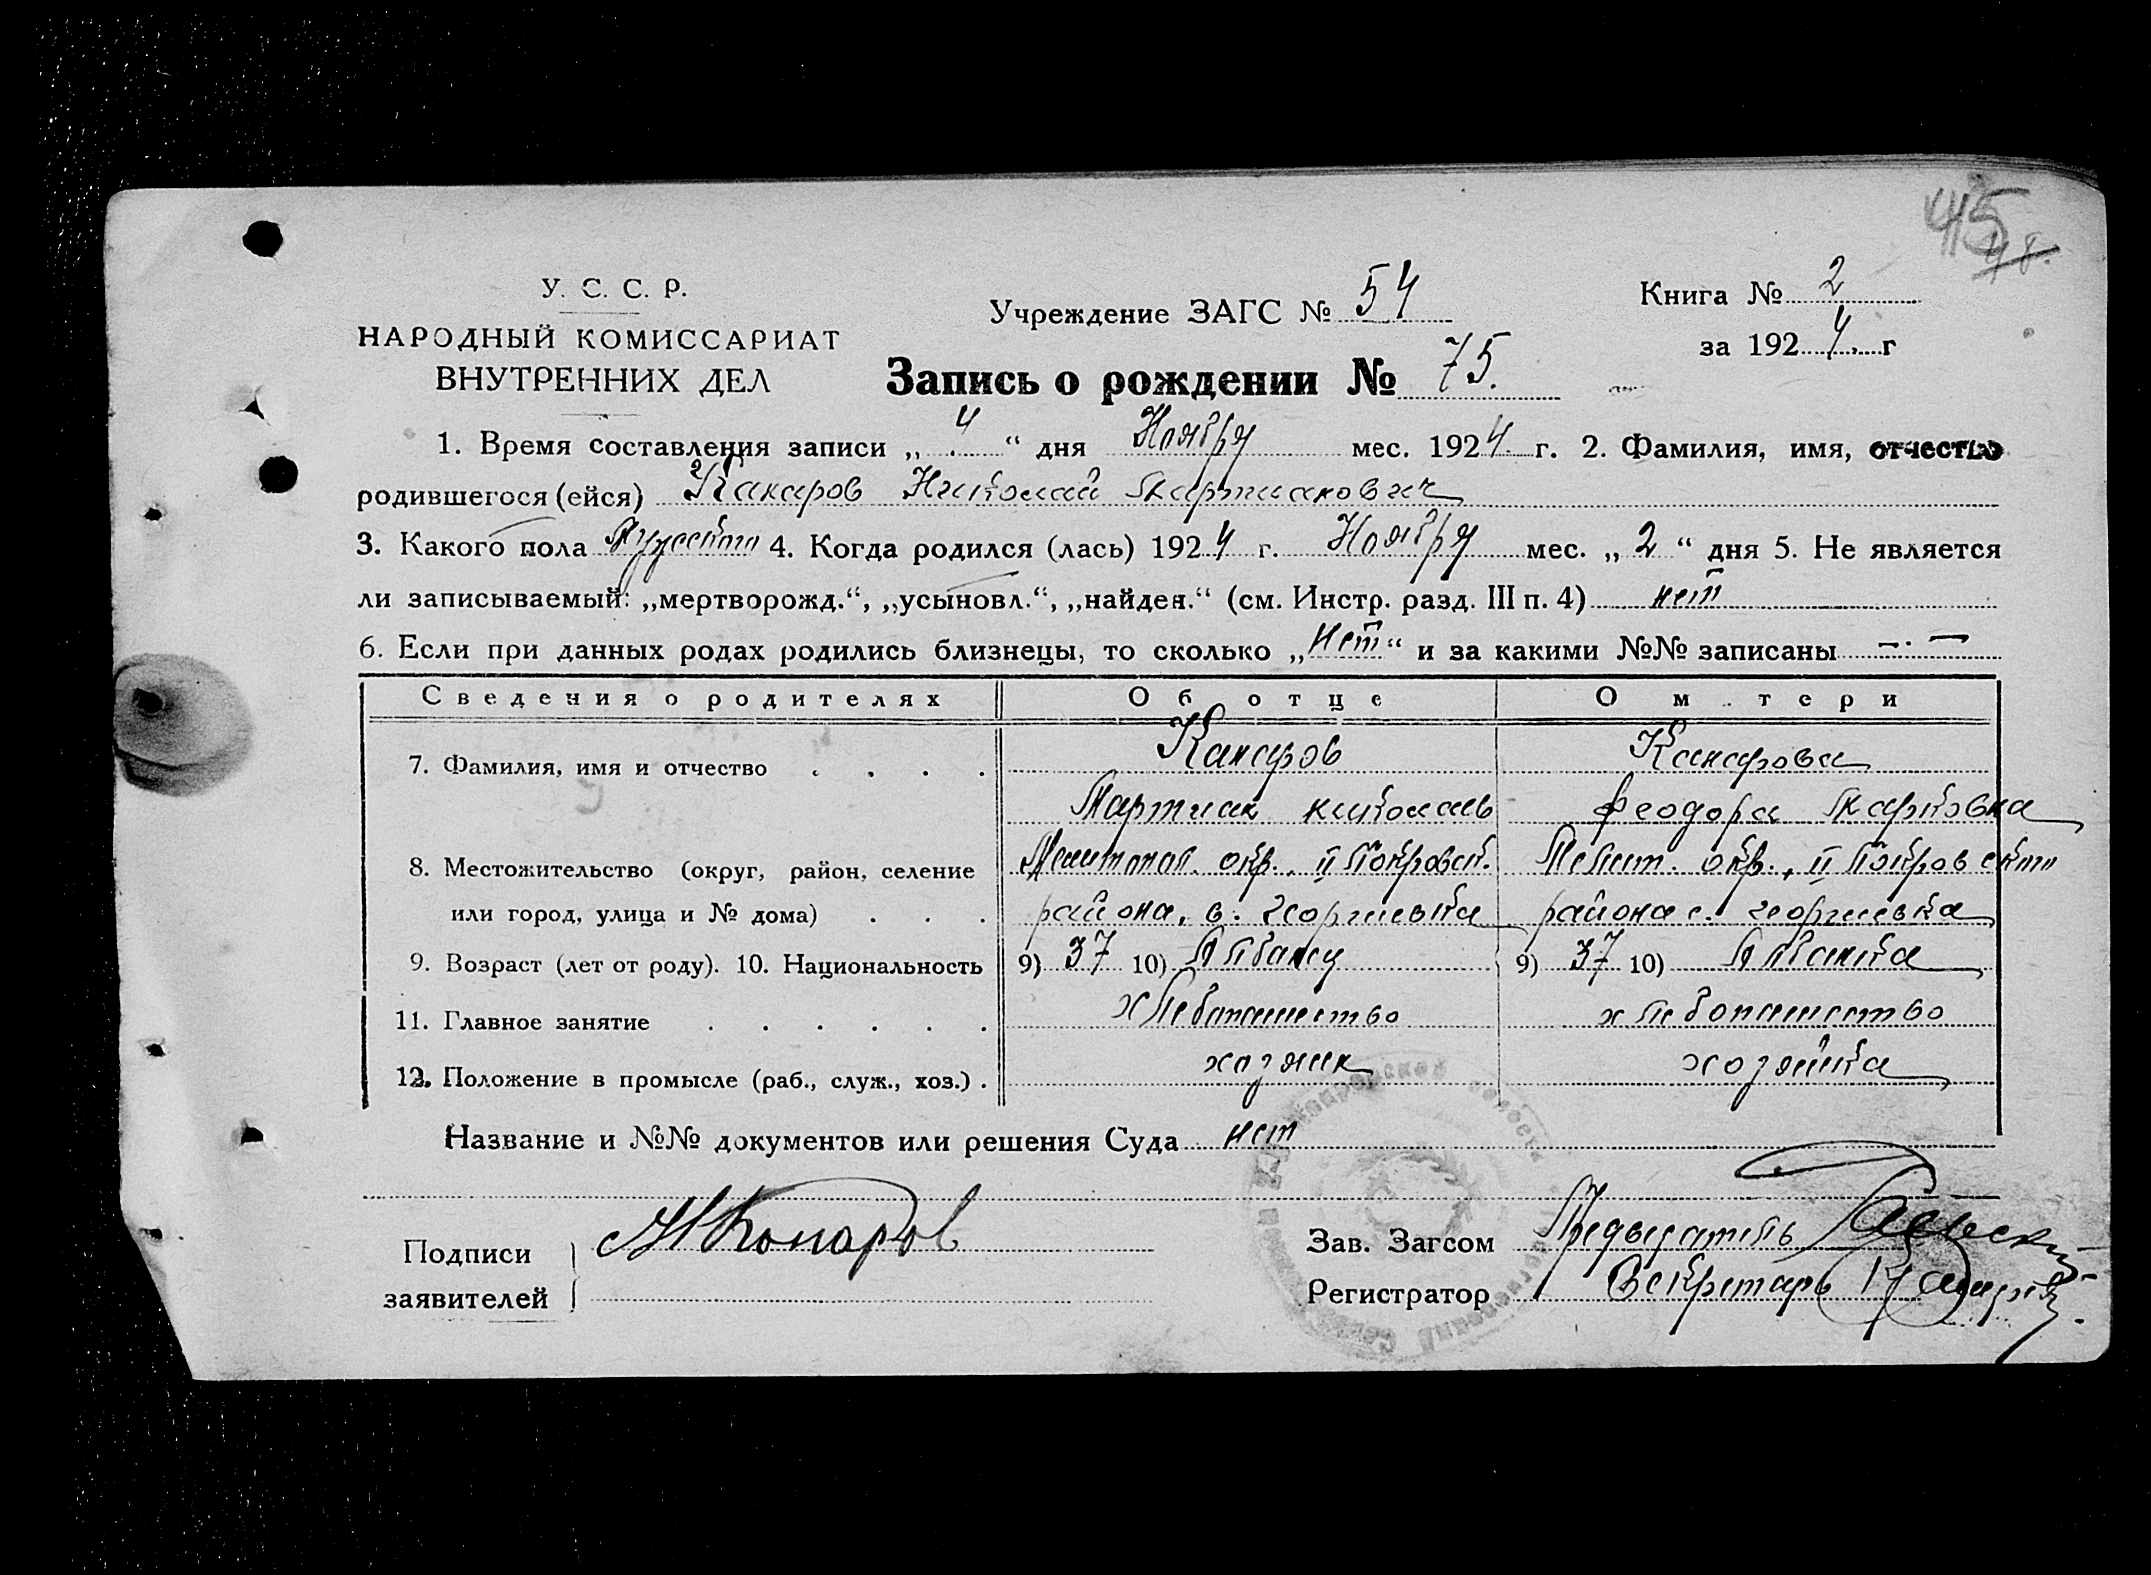 45
48.
У. С. С. Р.
НАРОДНЫЙ КОМИССАРИАТ
ВНУТРЕННИХ ДЕЛ
Учреждение ЗАГС № 54
Книга № 2
за 1924 г
Запись о рождении № 75.
1. Время составления записи „4“ дня Ноября мес. 1924 г. 2. Фамилия, имя, отчество
родившегося (ейся) Канаров Николай Мартианович
3. Какого пола Мужского 4. Когда родился (лась) 1924 г. Ноября мес. „2“ дня 5. Не является
ли записываемый: „мертворожд.“, „усыновл.“, „найден.“ (см. Инстр. разд. III п. 4) нет
6. Если при данных родах родились близнецы, то сколько „Нет“ и за какими №№ записаны — · —
Сведения о родителях Об отце О м тери
7. Фамилия, имя и отчество . . . . Канаров Канарова
Мартиан николаев Феодора Марковна
8. Местожительство (округ, район, селение Мелитопол. окр., II Покровск. Мелит. окр., II Покровского
или город, улица и № дома) . . . района, с. Георгиевка района с. Георгиевка
9. Возраст (лет от роду). 10. Национальность 9) 37 10) Албанец 9) 37 10) Албанка
11. Главное занятие . . . . . . хлебопашество хлебопашество
12. Положение в промысле (раб., служ., хоз.) . хозяин хозяйка
Название и №№ документов или решения Суда нет
Подписи
заявителей
М Конаров
Зав. Загсом Председатель
Регистратор Секретарь